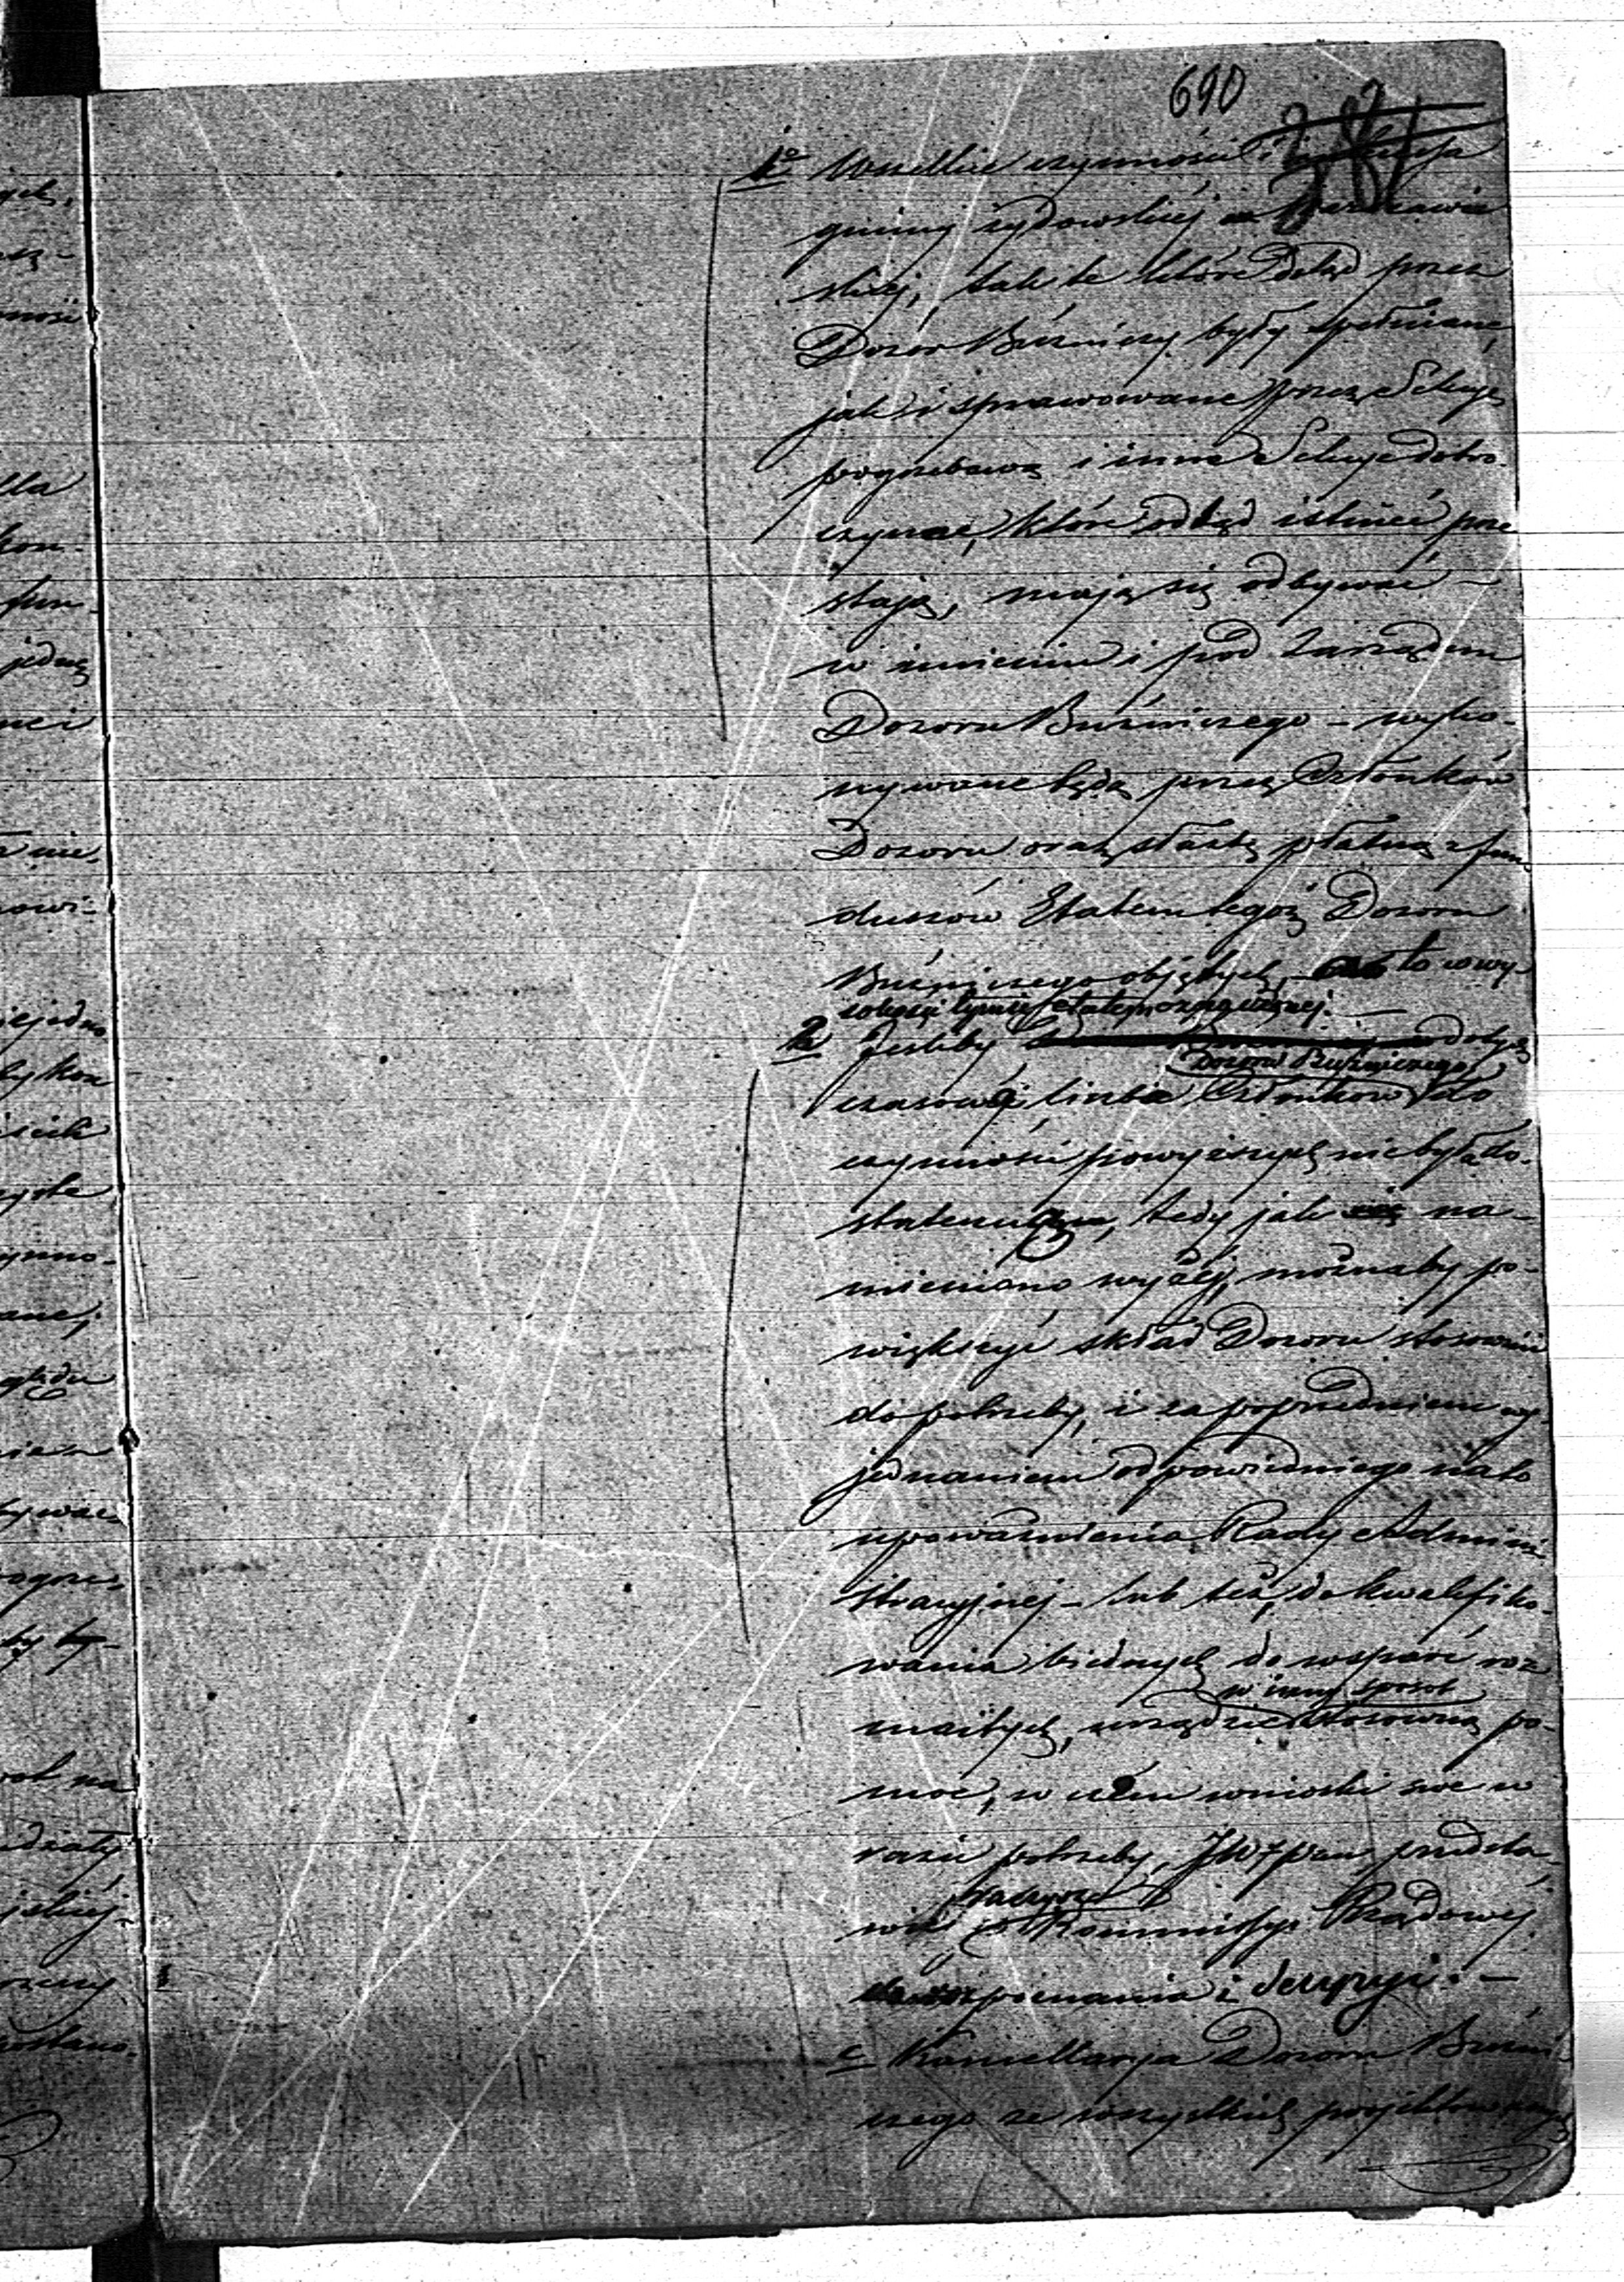 690
1o Wszelkie czynności i
gminy żydowskiej Warszaw
skiej, tak te które dotąd przez
Dozór Bużniczy były spełniane,
jak i sprawowane przez Sekcye
pogrzebową i inne Sekcye dobro-
czynne, które odtąd istnieć prze
stają, mają się odbywać –
w imieniu i pod Zarządem
Dozoru Bużniczego – wyko-
nywane będą przez Członków
Dozoru oraz służbę płatną z fun
duszów Etatem tegoż Dozoru
Bużniczego objętych, – to w wy
sokości tymże etatem oznaczonej. —
2 Jeśliby dotych
Dozoru Bużniczego
czasowa liczba Członków do
czynności powyższych nie była do-
stateczną, tedy jak na-
mieniono wyżej, możnaby po-
większyć skład Dozoru stosownie
do potrzeby, i za poprzedniem wy-
jednaniem odpowiedniego na to
upoważnienia Rady Admini-
stracyjnej – lub też, do kwalifiko-
wania biednych do wsparć roz
w inny sposób
maitych, urządzić stosowną po-
moc, w czem wnioski swe w
razie potrzeby, JW Pan przedsta-
wi Kommissyi Rządowej
poznania i decyzyi. —
c Kancellarya Dozoru Bużni-
czego ze wszystkich